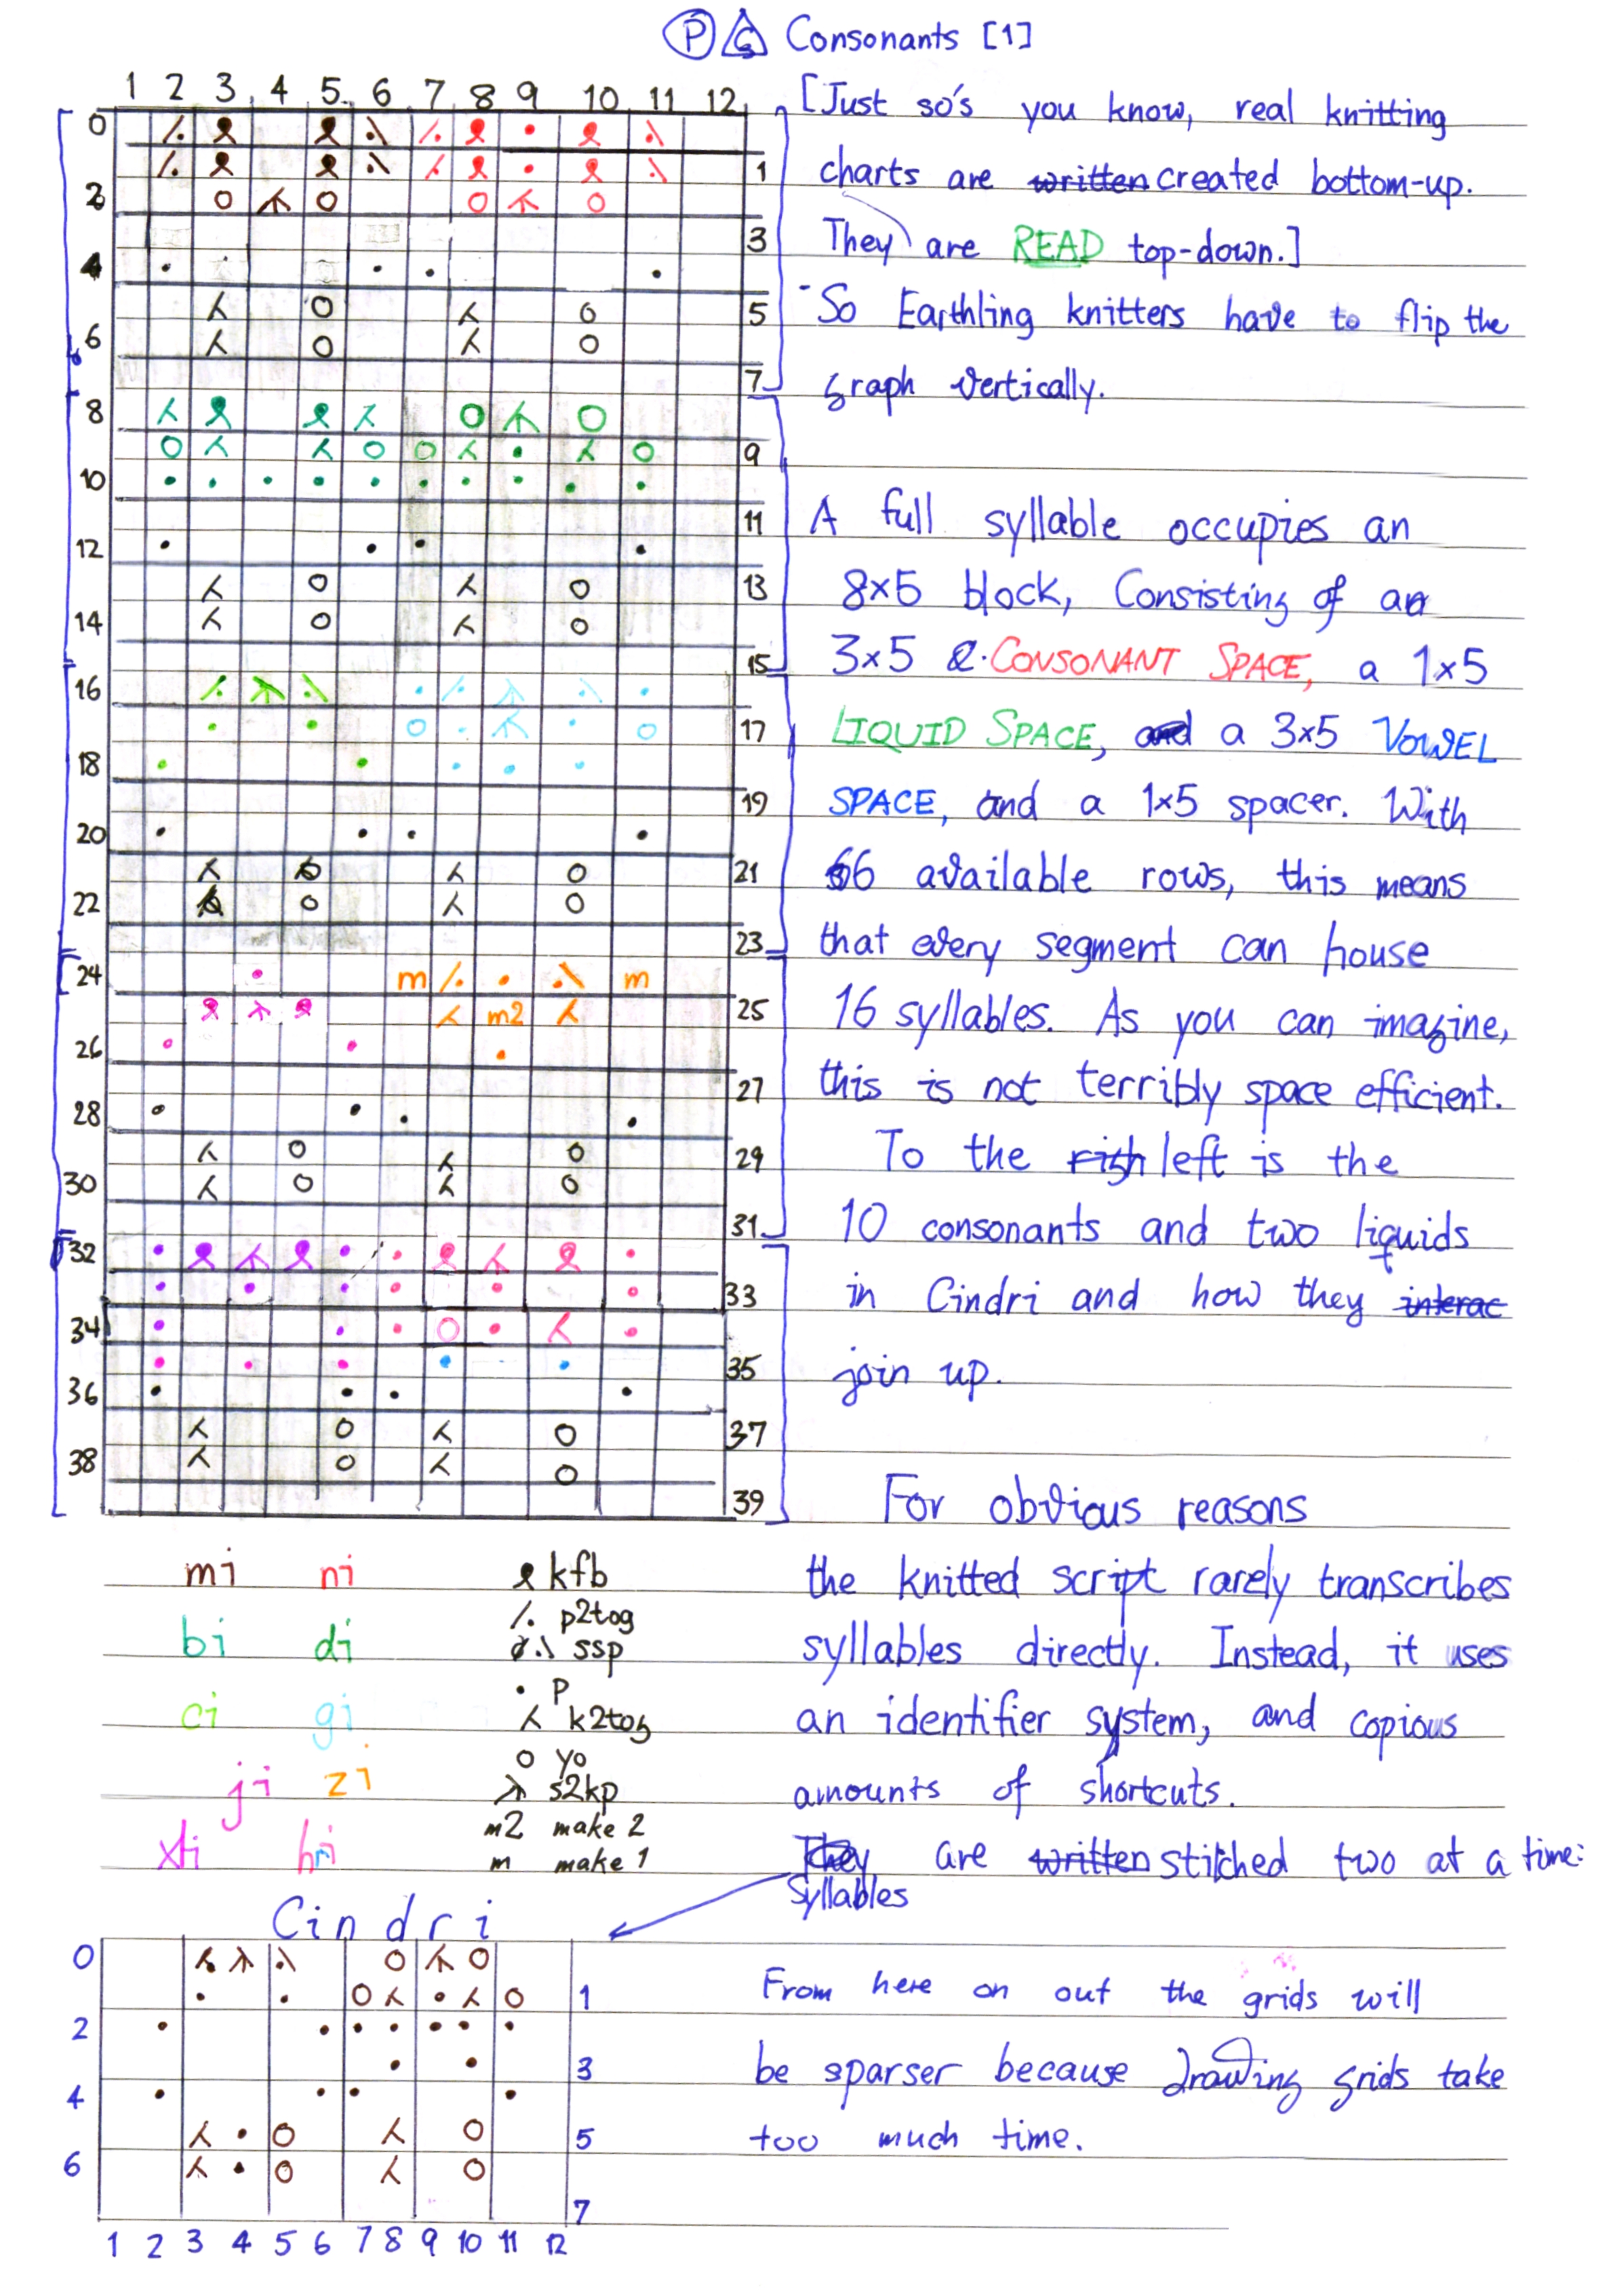 P G Consonants [1]
1 2 3 4 5 6 7 8 9 10 11 12
0
1
2
3
4
5
6
7
8
9
10
11
12
13
14
15
16
17
18
19
20
21
22
23
24 m m
25 m2
26
27
28
29
30
31
32
33
34
35
36
37
38
39
[Just so's you know, real knitting
charts are written created bottom-up.
They are READ top-down.]
So Earthling knitters have to flip the
graph vertically.
A full syllable occupies an
8x5 block, Consisting of an
3x5 CONSONANT SPACE, a 1x5
LIQUID SPACE, and a 3x5 VOWEL
SPACE, and a 1x5 spacer. With
66 available rows, this means
that every segment can house
16 syllables. As you can imagine,
this is not terribly space efficient.
To the righ left is the
10 consonants and two liquids
in Cindri and how they interac
join up.
For obvious reasons
the knitted script rarely transcribes
syllables directly. Instead, it uses
an identifier system, and copious
amounts of shortcuts.
They are written stitched two at a time:
Syllables
mi ni
bi di
ci gi
ji zi
xli hri
kfb
p2tog
ssp
P
k2tog
yo
s2kp
m2 make 2
m make 1
Cindri
0
1
2
3
4
5
6
7
1 2 3 4 5 6 7 8 9 10 11 12
From here on out the grids will
be sparser because drawing grids take
too much time.